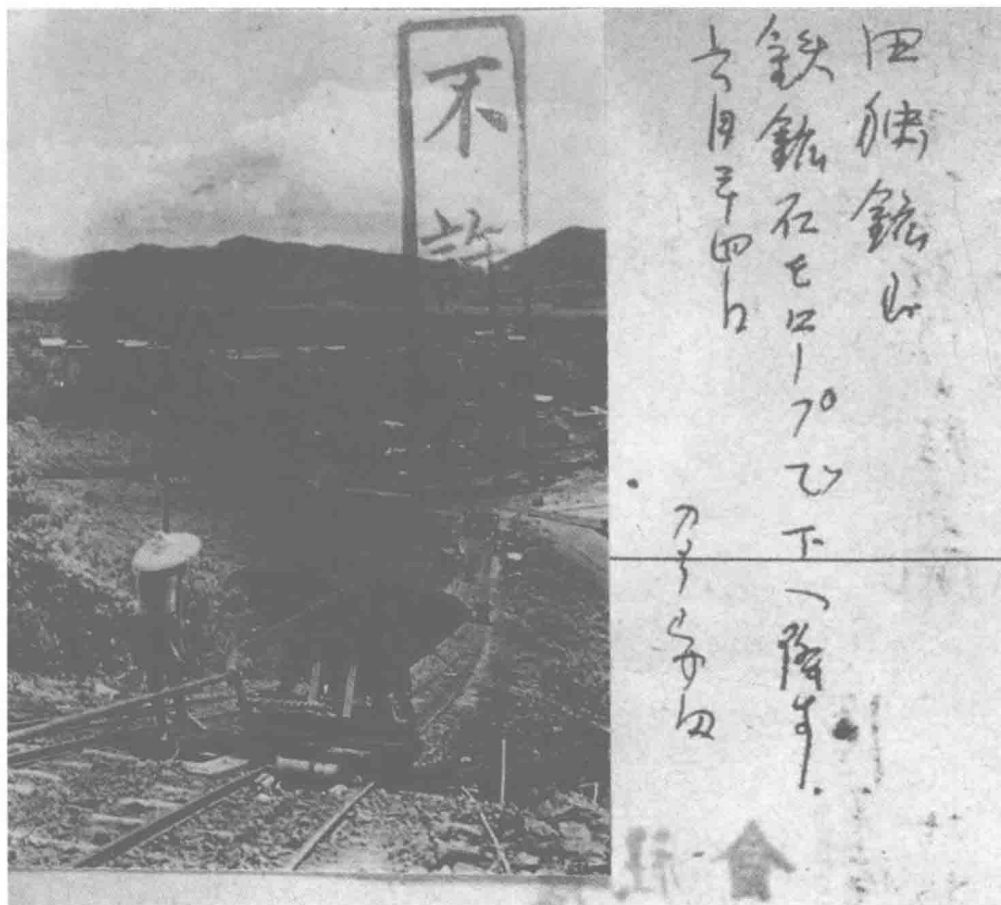 不許
田独鉱山
鉄鉱石をロープで下へ降す.
六月二十四日
安田
會社